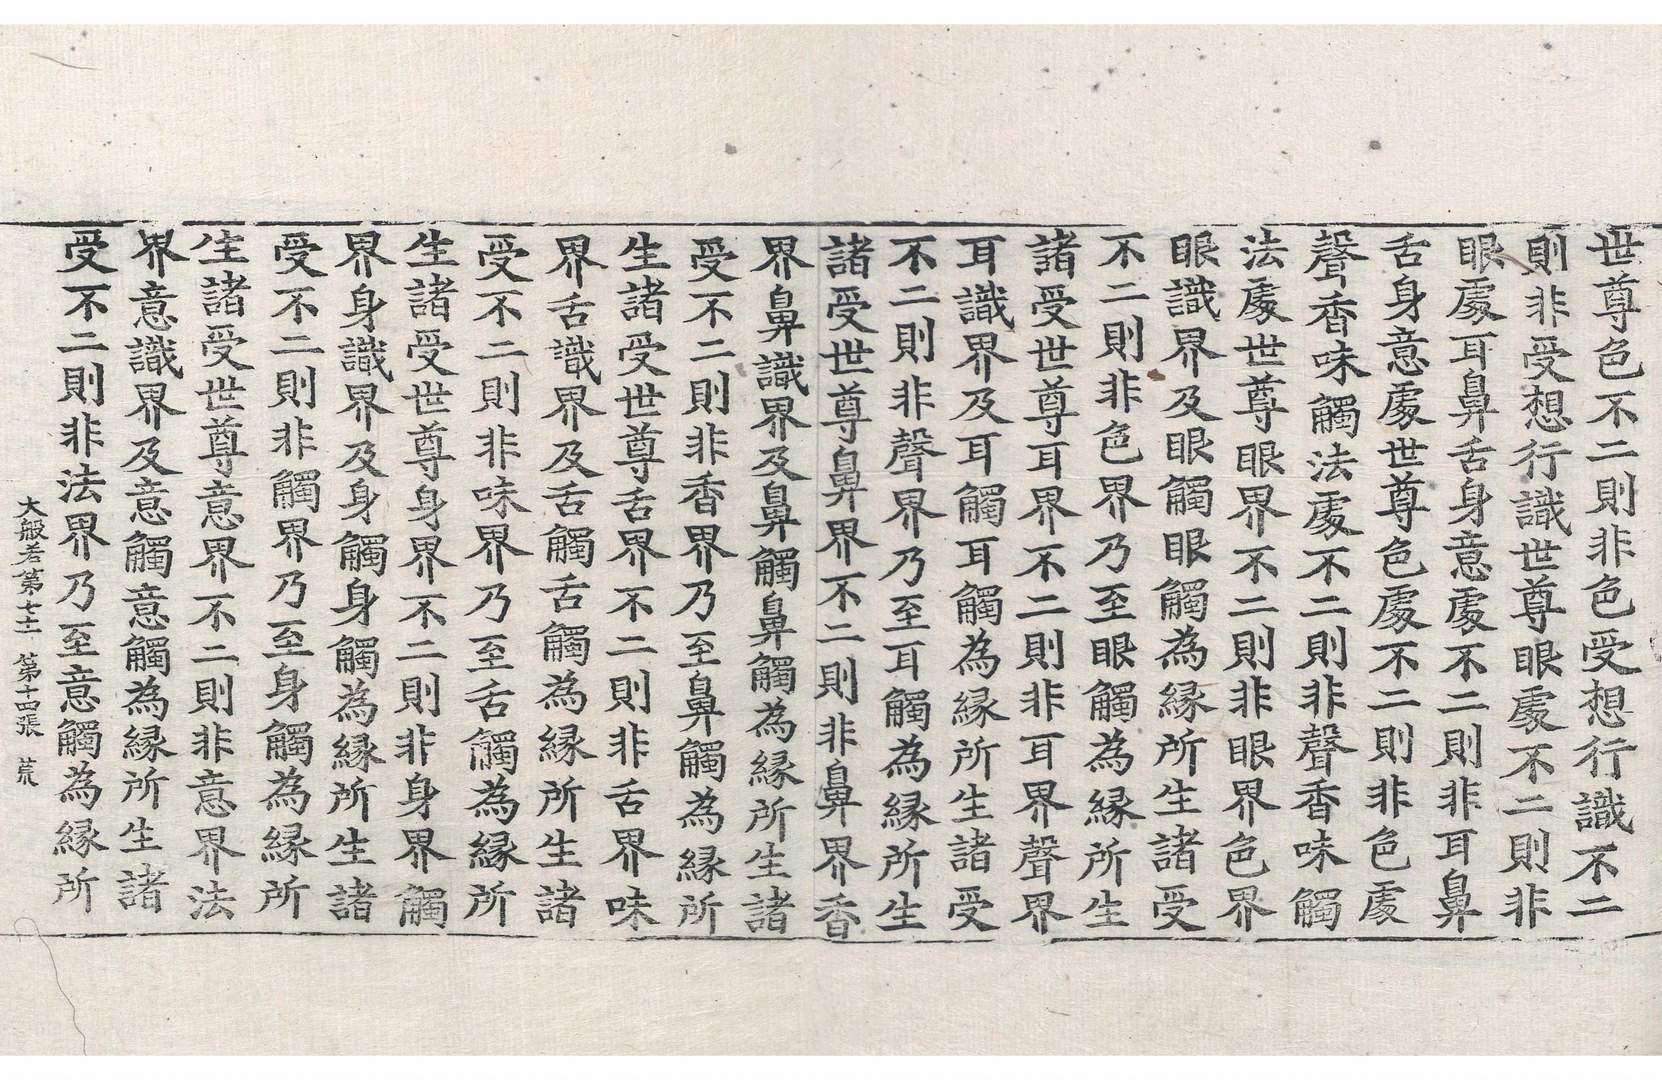 世尊色不二則非色受想行識不二
則非受想行識世尊眼處不二則非
眼處耳鼻舌身意處不二則非耳鼻
舌身意處世尊色處不二則非色處
聲香味觸法處不二則非聲香味觸
法處世尊眼界不二則非眼界色界
眼識界及眼觸眼觸為縁所生諸受
不二則非色界乃至眼觸為縁所生
諸受世尊耳界不二則非耳界聲界
耳識界及耳觸耳觸為縁所生諸受
不二則非聲界乃至耳觸為縁所生
諸受世尊鼻界不二則非鼻界香
界鼻識界及鼻觸鼻觸為縁所生諸
受不二則非香界乃至鼻觸為縁所
生諸受世尊舌界不二則非舌界味
界舌識界及舌觸舌觸為縁所生諸
受不二則非味界乃至舌觸為縁所
生諸受世尊身界不二則非身界觸
界身識界及身觸身觸為縁所生諸
受不二則非觸界乃至身觸為縁所
生諸受世尊意界不二則非意界法
界意識界及意觸意觸為縁所生諸
受不二則非法界乃至意觸為縁所
大般若第七十 第十四張 荒